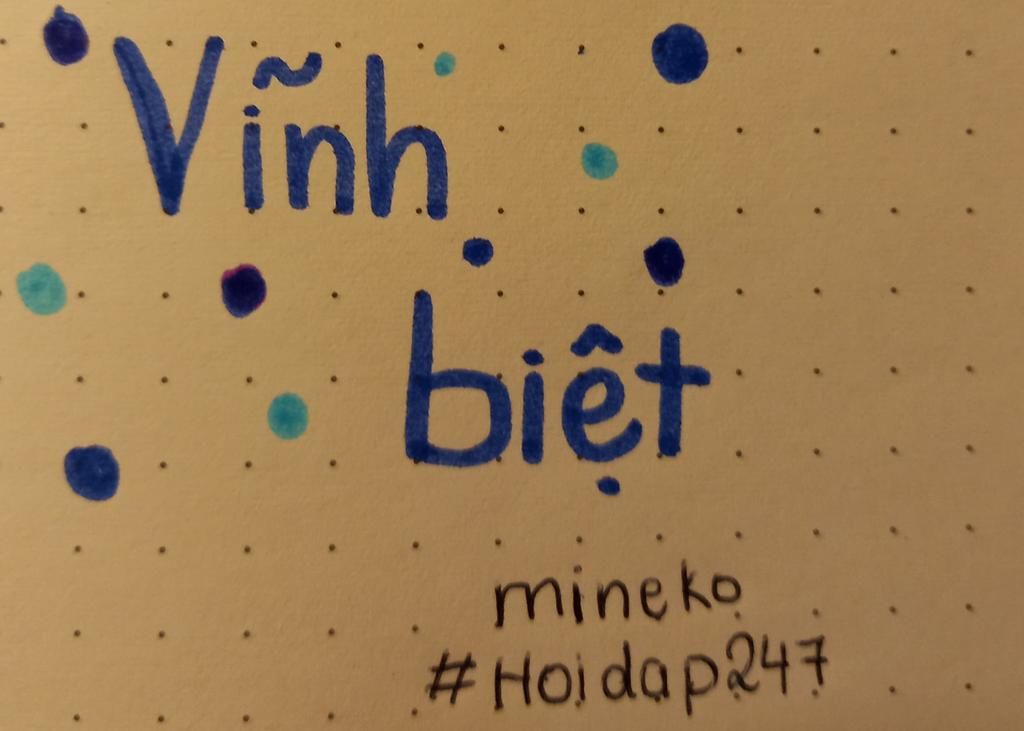 Vĩnh
biệt
mineko
#Hoidap247